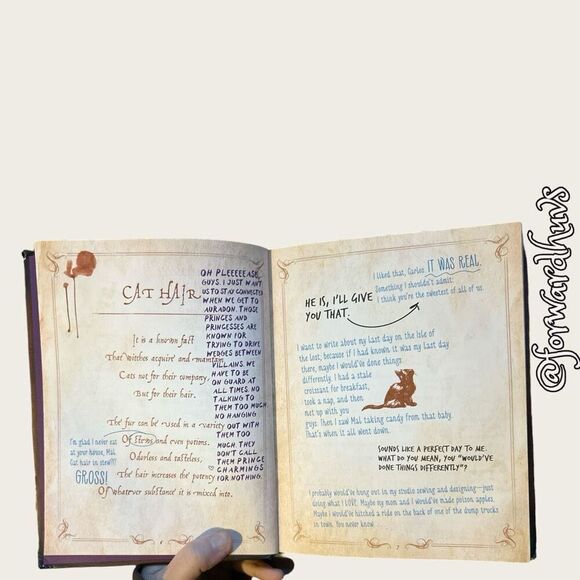 CAT HAIR
It is a known fact
That witches acquire and maintain
Cats not for their company,
But for their hair.
The fur can be used in a variety
Of stews and even potions.
Odorless and tasteless,
The hair increases the potency
Of whatever substance it is mixed into.
I'm glad I never eat
at your house, Mal.
Cat hair in stew??!
GROSS!
OH PLEEEEEASE,
GUYS. I JUST WANT
US TO STAY CONNECTED
WHEN WE GET TO
AURADON. THOSE
PRINCES AND
PRINCESSES ARE
KNOWN FOR
TRYING TO DRIVE
WEDGES BETWEEN
VILLAINS. WE
HAVE TO BE
ON GUARD AT
ALL TIMES. NO
TALKING TO
THEM TOO MUCH.
NO HANGING
OUT WITH
THEM TOO
MUCH. THEY
DON'T CALL
THEM PRINCE
CHARMINGS
FOR NOTHING.
6
I liked that, Carlos. IT WAS REAL.
Something I shouldn't admit:
I think you're the sweetest of all of us.
HE IS, I'LL GIVE
YOU THAT.
I want to write about my last day on the Isle of
the Lost, because if I had known it was my last day
there, maybe I would've done things
differently. I had a stale
croissant for breakfast,
took a nap, and then
met up with you
guys. Then I saw Mal taking candy from that baby.
That's when it all went down.
SOUNDS LIKE A PERFECT DAY TO ME.
WHAT DO YOU MEAN, YOU "WOULD'VE
DONE THINGS DIFFERENTLY"?
I probably would've hung out in my studio sewing and designing—just
doing what I LOVE. Maybe my mom and I would've made poison apples.
Maybe I would've hitched a ride on the back of one of the dump trucks
in town. You never know.
7
@forwardhuvs